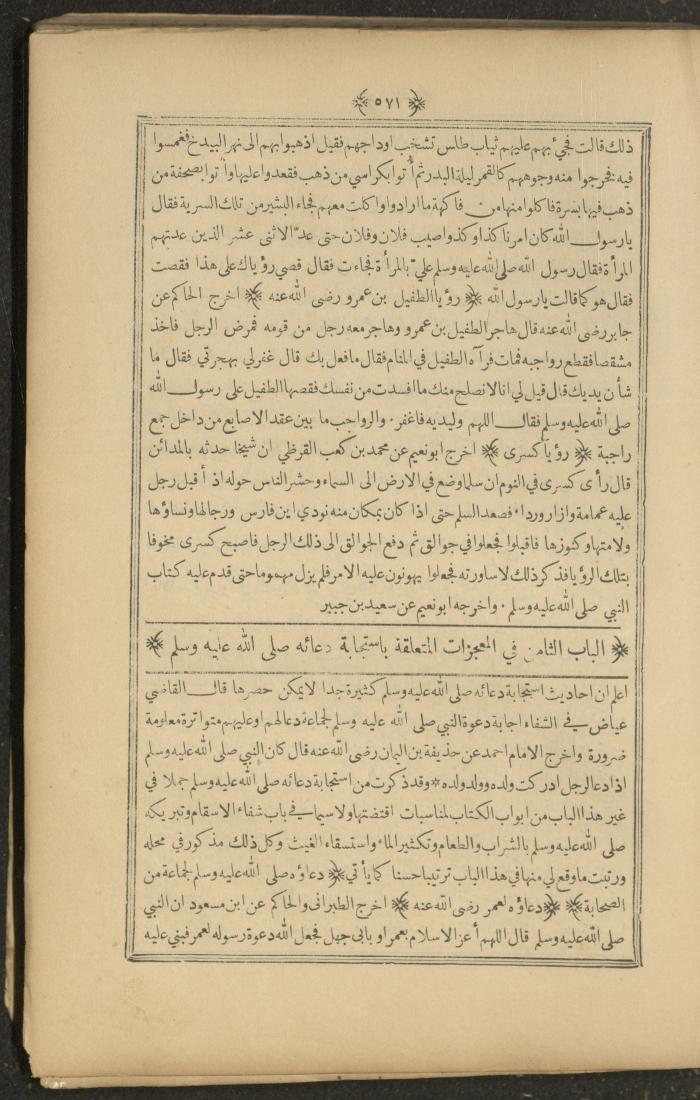 ﴿ ٥٧١ ﴾
ذلك قالت فجيء بهم عليهم ثياب طلس تشخب اوداجهم فقيل اذهبوا بهم الى نهر البيدخ فغمسوا
فيه فخرجوا منه وجوههم كالقمر ليلة البدر ثم أُتوا بكراسي من ذهب فقعدوا عليها وأُتوا بصحفة من
ذهب فيها بسرة فاكلوا منها من فاكهة ما ارادوا واكلت معهم فجاء البشير من تلك السرية فقال
يا رسول الله كان امرنا كذا وكذا واصيب فلان وفلان حتى عدّ الاثنى عشر الذين عدتهم
المرأة فقال رسول الله صلى الله عليه وسلم عليّ بالمرأة فجاءت فقال قصي رؤياك على هذا فقصت
فقال هو كما قالت يا رسول الله ﴿ رؤيا الطفيل بن عمرو رضى الله عنه ﴾ اخرج الحاكم عن
جابر رضى الله عنه قال هاجر الطفيل بن عمرو وهاجر معه رجل من قومه فمرض الرجل فاخذ
مشقصا فقطع رواجبه فمات فرآه الطفيل في المنام فقال ما فعل بك قال غفر لي بهجرتي فقال ما
شأن يديك قال قيل لي انا لا نصلح منك ما افسدت من نفسك فقصها الطفيل على رسول الله
صلى الله عليه وسلم فقال اللهم وليديه فاغفر . والرواجب ما بين عقد الاصابع من داخل جمع
راجبة ﴿ رؤيا كسرى ﴾ اخرج ابو نعيم عن محمد بن كعب القرظي ان شيخا حدثه بالمدائن
قال رأى كسرى في النوم ان سلما وضع في الارض الى السماء وحشر الناس حوله اذ أقبل رجل
عليه عمامة وازار ورداء فصعد السلم حتى اذا كان بمكان منه نودي اين فارس ورجالها ونساؤها
ولامتها وكنوزها فاقبلوا فجعلوا في جوالق ثم دفع الجوالق الى ذلك الرجل فاصبح كسرى مخوفا
بتلك الرؤيا فذكر ذلك لاساورته فجعلوا يهونون عليه الامر فلم يزل مهموما حتى قدم عليه كتاب
النبي صلى الله عليه وسلم . واخرجه ابو نعيم عن سعيد بن جبير
﴿ الباب الثامن في المعجزات المتعلقة باستجابة دعائه صلى الله عليه وسلم ﴾
اعلم ان احاديث استجابة دعائه صلى الله عليه وسلم كثيرة جدا لا يمكن حصرها قال القاضي
عياض في الشفاء اجابة دعوة النبي صلى الله عليه وسلم لجماعة دعا لهم او عليهم متواترة معلومة
ضرورة واخرج الامام احمد عن حذيفة بن اليمان رضى الله عنه قال كان النبي صلى الله عليه وسلم
اذا دعا لرجل ادركت ولده وولد ولده * وقد ذكرت من استجابة دعائه صلى الله عليه وسلم جملا في
غير هذا الباب من ابواب الكتاب لمناسبات اقتضتها ولا سيما في باب شفاء الاسقام وتبريكه
صلى الله عليه وسلم بالشراب والطعام وتكثير الماء واستسقاء الغيث وكل ذلك مذكور في محله
ورتبت ما وقع لي منها في هذا الباب ترتيبا حسنا كما يأتي ﴿ دعاؤه صلى الله عليه وسلم لجماعة من
الصحابة ﴾ ﴿ دعاؤه لعمر رضى الله عنه ﴾ اخرج الطبرانى والحاكم عن ابن مسعود ان النبي
صلى الله عليه وسلم قال اللهم أعز الاسلام بعمر او بابى جهل فجعل الله دعوة رسوله لعمر فبني عليه